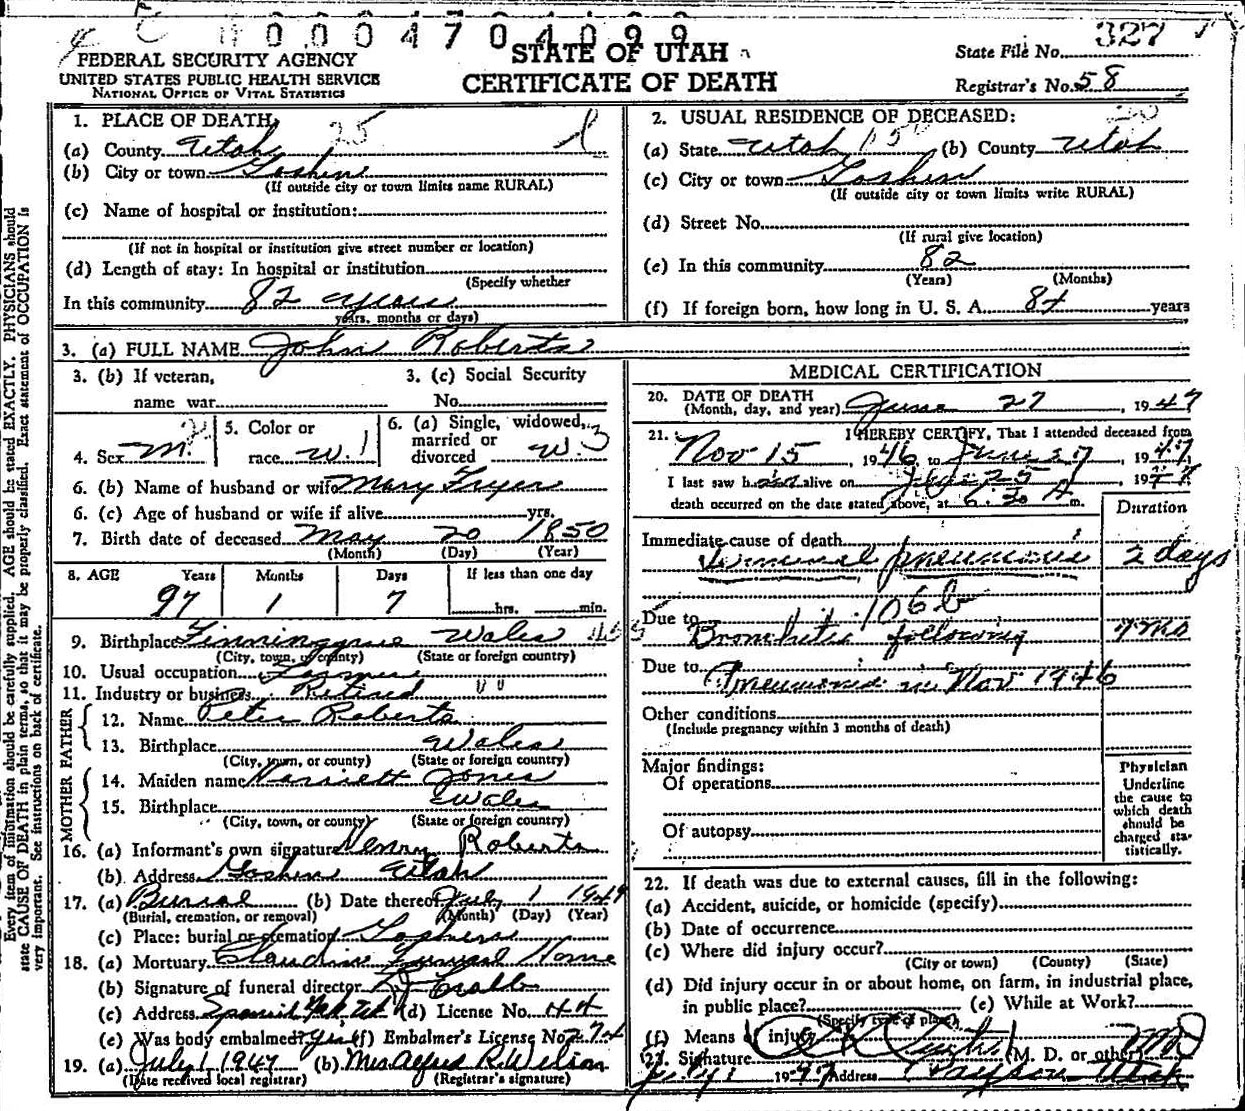 0 0 0 4 7 0 4 0 9 9
FEDERAL SECURITY AGENCY
UNITED STATES PUBLIC HEALTH SERVICE
NATIONAL OFFICE OF VITAL STATISTICS
STATE OF UTAH
CERTIFICATE OF DEATH
State File No. 327
Registrar's No. 58
Every item of information should be carefully supplied. AGE should be stated EXACTLY. PHYSICIANS should
state CAUSE OF DEATH in plain terms, so that it may be properly classified. Exact statement of OCCUPATION is
very important. See instructions on back of certificate.
1. PLACE OF DEATH, 25
(a) County Utah
(b) City or town Goshen
(If outside city or town limits name RURAL)
(c) Name of hospital or institution:
(If not in hospital or institution give street number or location)
(d) Length of stay: In hospital or institution
(Specify whether
In this community 82 years
years, months or days)
2. USUAL RESIDENCE OF DECEASED:
(a) State Utah (b) County Utah
(c) City or town Goshen
(If outside city or town limits write RURAL)
(d) Street No.
(If rural give location)
(e) In this community 82
(Years) (Months)
(f) If foreign born, how long in U. S. A. 84 years
3. (a) FULL NAME John Roberts
3. (b) If veteran, 3. (c) Social Security
name war No.
4. Sex M. 5. Color or race W. 1 6. (a) Single, widowed, married or divorced W. 3
6. (b) Name of husband or wife Mary Fryer
6. (c) Age of husband or wife if alive yrs.
7. Birth date of deceased May 20 1850
(Month) (Day) (Year)
8. AGE Years Months Days If less than one day
97 1 7 hrs. min.
9. Birthplace Wales
(City, town, or county) (State or foreign country)
10. Usual occupation Farmer
11. Industry or business Retired
FATHER
12. Name Peter Roberts
13. Birthplace Wales
(City, town, or county) (State or foreign country)
MOTHER
14. Maiden name Harriett Jones
15. Birthplace Wales
(City, town, or county) (State or foreign country)
16. (a) Informant's own signature Henry Roberts
(b) Address Goshen Utah
17. (a) Burial (b) Date thereof July 1 1947
(Burial, cremation, or removal) (Month) (Day) (Year)
(c) Place: burial or cremation Goshen
18. (a) Mortuary Claudin Funeral Home
(b) Signature of funeral director
(c) Address Spanish Fork, Ut (d) License No. 44
(e) Was body embalmed? Yes (f) Embalmer's License No. 274
19. (a) July 1 1947 (b) Mrs Alfred R. Wilson
(Date received local registrar) (Registrar's signature)
MEDICAL CERTIFICATION
20. DATE OF DEATH
(Month, day, and year) June 27, 1947
21. I HEREBY CERTIFY, That I attended deceased from
Nov 15, 1946 to June 27, 1947
I last saw him alive on June 25, 1947
death occurred on the date stated above, at 6:30 A m.
Duration
Immediate cause of death
Terminal pneumonia 2 days
106b
Due to Bronchitis following 7 mo
Due to Pneumonia in Nov 1946
Other conditions
(Include pregnancy within 3 months of death)
Major findings:
Of operations
Of autopsy
Physician
Underline
the cause to
which death
should be
charged sta-
tistically.
22. If death was due to external causes, fill in the following:
(a) Accident, suicide, or homicide (specify)
(b) Date of occurrence
(c) Where did injury occur?
(City or town) (County) (State)
(d) Did injury occur in or about home, on farm, in industrial place,
in public place? (e) While at Work?
(Specify type of place)
(f) Means of injury
23. Signature Curtis (M. D. or other) MD
July 1 1947 Address Payson Utah